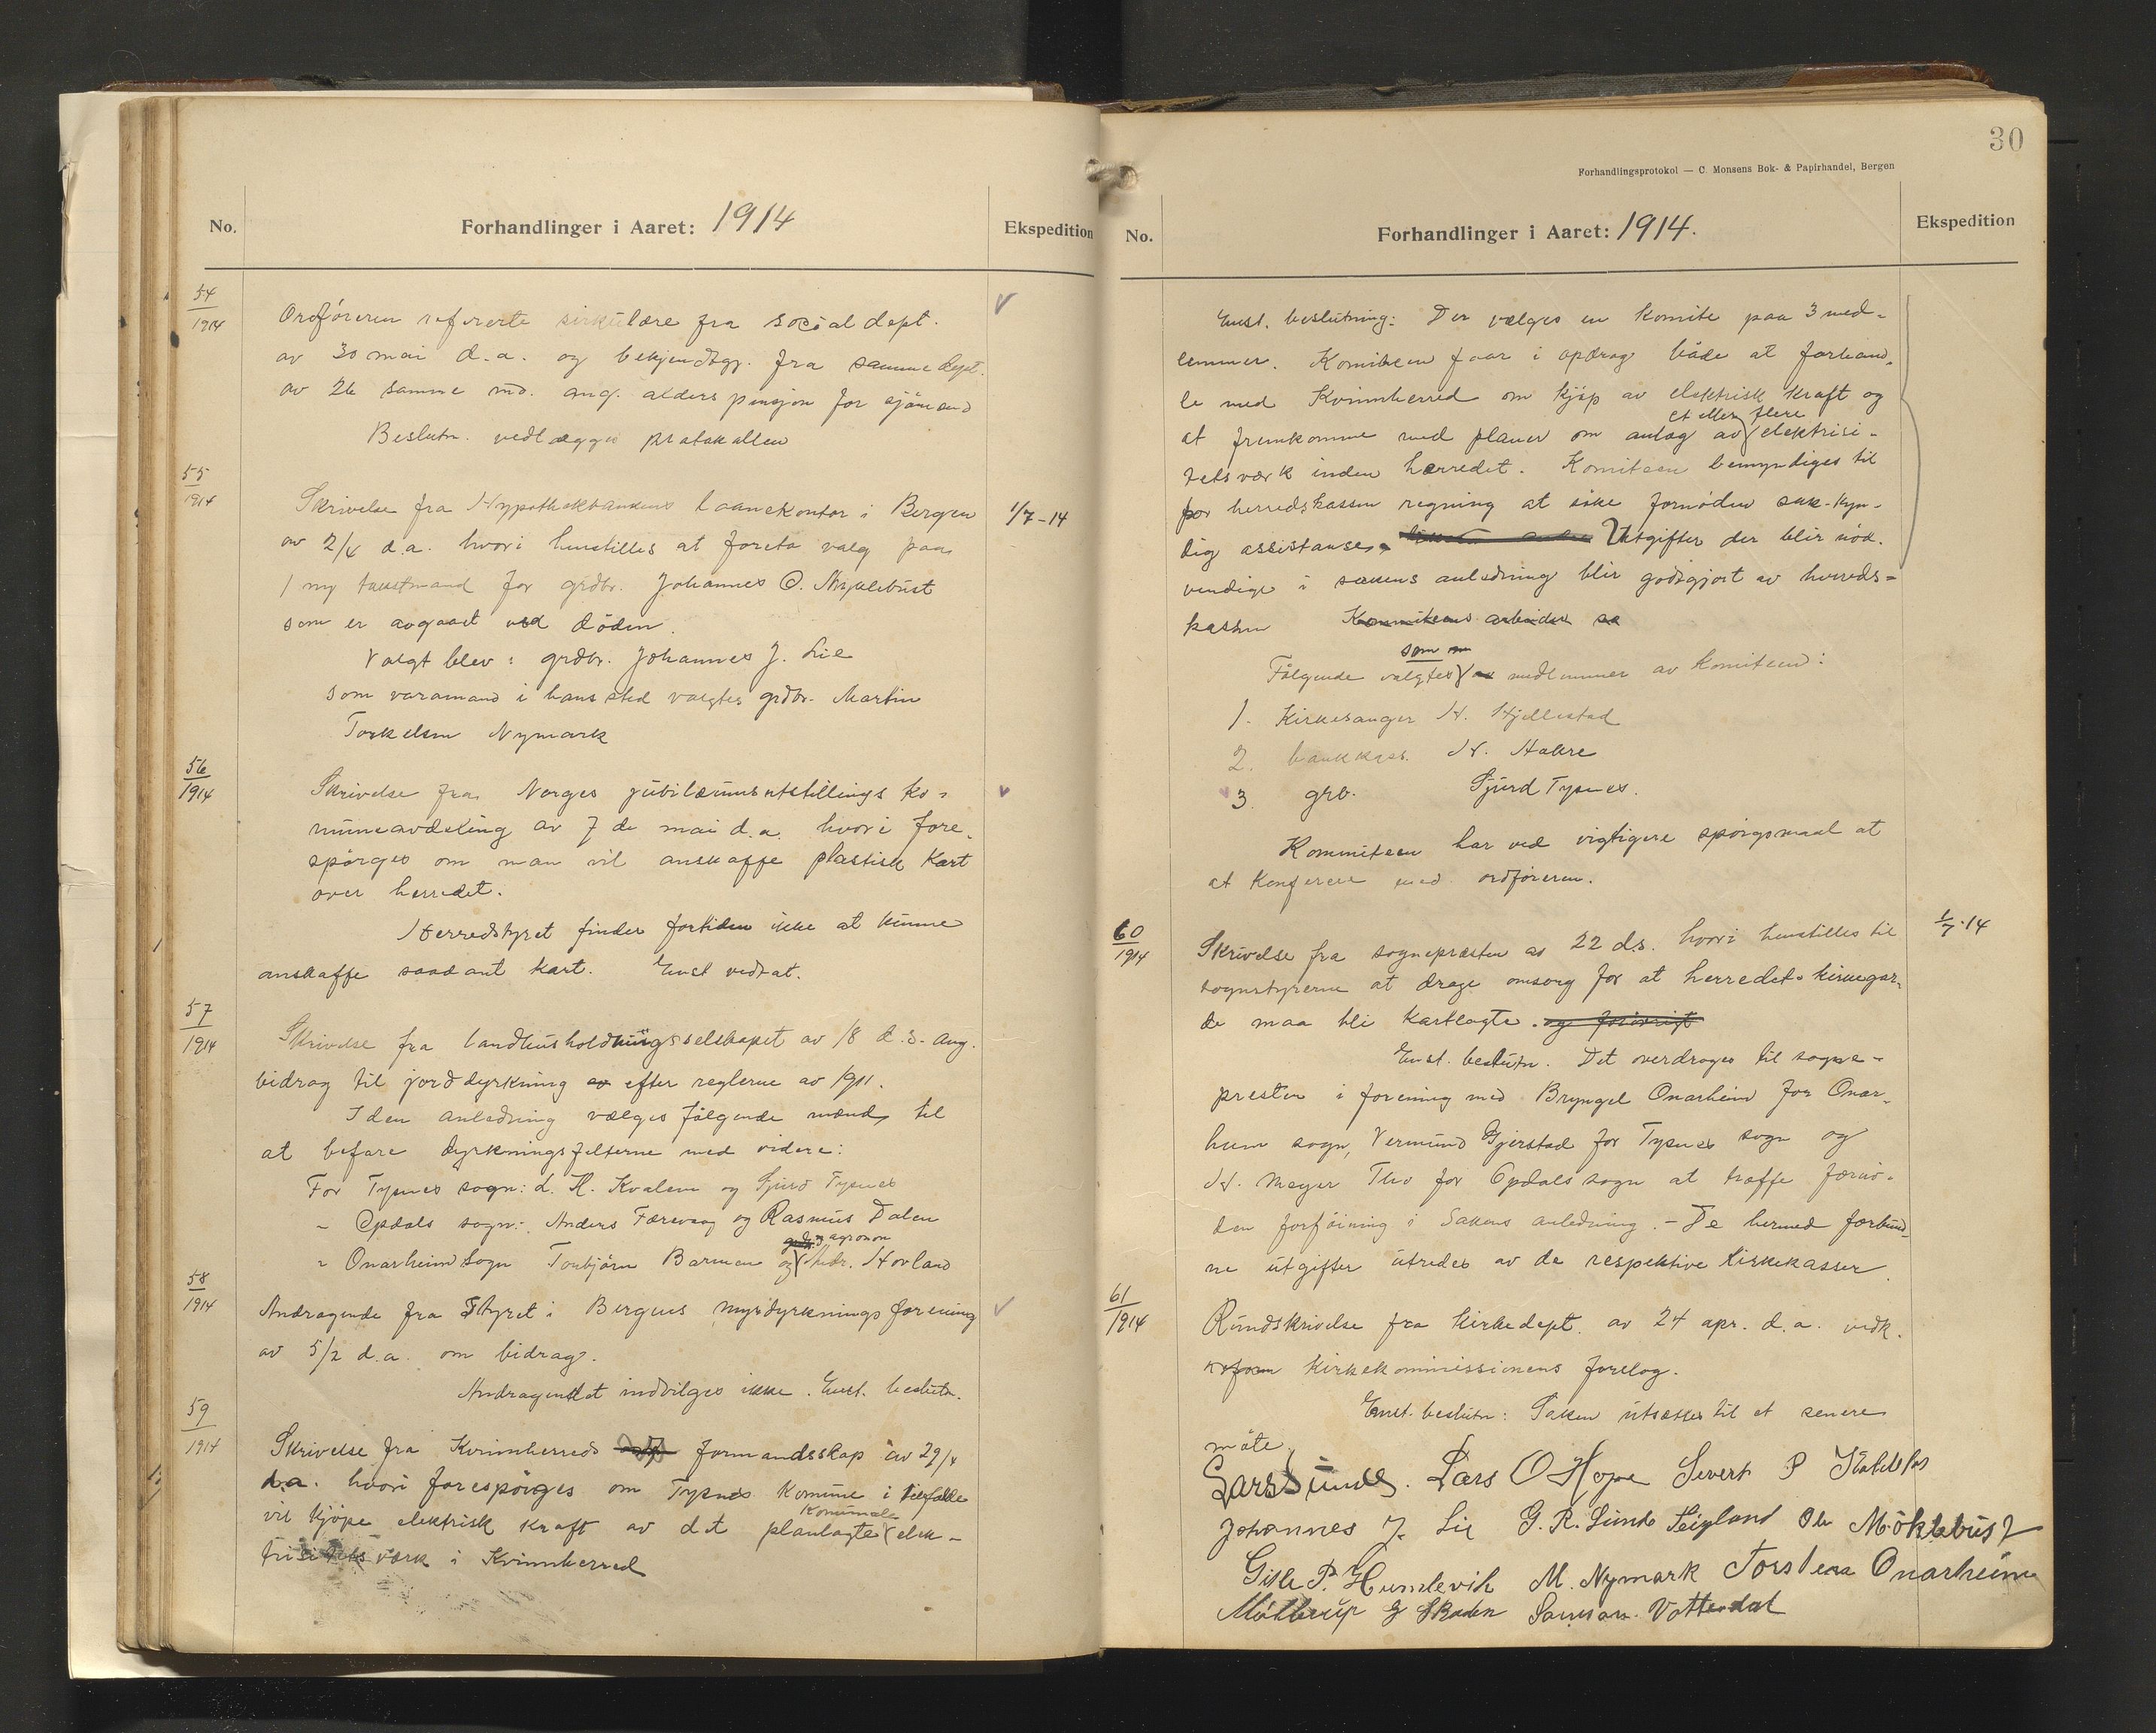 No.
Forhandlinger i Aaret: 1914
Ekspedition
54
1914
Ordföreren refererte sirkulære fra social dept.
av 30 mai d.a. og bekjendtgj. fra samme dept.
av 26 samme md. ang. alderspensjon for sjömænd
Beslutn. vedlægges protokollen
55
1914
Skrivelse fra Hypothekbankens laanekontor i Bergen
1/7-14
av 2/4 d.a. hvori henstilles at foreta valg paa
1 ny takstmand for grdbr. Johannes O. Myklebust
som er avgaaet ved döden.
Valgt blev: grdbr. Johannes J. Lie
som varamand i hans sted valgtes grdbr. Martin
Torkelsen Nymark
56
1914
Skrivelse fra Norges jubilæumsutstillings ko-
muneavdeling av 7de mai d.a. hvori fore-
spörges om man vil anskaffe plastisk kart
over herredet.
Herredstyret finder fortiden ikke at kunne
anskaffe saadant kart. Enst vedtat.
57
1914
Skrivelse fra landhusholdningsselskapet av 18 d.s. ang.
bidrag til jorddyrkning av efter reglerne av 1911.
I den anledning vælges fölgende mænd til
at befare dyrkningsfelterne med videre:
For Tysnes sogn: L. H. Kvalem og Sjurd Tysnes
" Opdals sogn: Anders Færevaag og Rasmus Dalen
grdbr. og agronom
" Onarheim sogn Torbjörn Barmen og Andr. Hovland
58
1914
Andragende fra Styret i Bergens myrdyrkningsforening
av 5/2 d.a. om bidrag.
Andragendet indvilges ikke. Enst. beslutn.
59
1914
Skrivelse fra Kvinnherreds formandsskap av 29/4
d.a. hvori forespörges om Tysnes komune i tilfælde
komunale
vil kjöpe elektrisk kraft av det planlagte elek-
trisitetsværk i Kvinnherred
30
Forhandlingsprotokol — C. Monsens Bok- & Papirhandel, Bergen
No.
Forhandlinger i Aaret: 1914.
Ekspedition
Enst. beslutning: Der vælges en komite paa 3 med-
lemmer. Komiteen faar i opdrag både at forhand-
le med Kvinnherred om kjöp av elektrisk kraft og
et eller flere
at fremkomme med planer om anlæg av elektrisi-
tetsværk inden herredet. Komiteen bemyndiges til
for herredskassen regning at söke fornöden sak-kyn-
dig assistanse. Utgifter der blir nöd-
vendige i sakens anledning blir godtgjort av herreds-
kassen Kommiteens arbeider sa
som
Fölgende valgtes medlemmer av komiteen:
1. Kirkesanger H. Hjellestad
2. bankkass. N. Hakre
3. grb. Sjurd Tysnes.
Kommiteen har ved vigtigere spörgsmaal at
at konferere med ordföreren.
60
1914
1/7-14
Skrivelse fra sognepresten av 22 ds. hvori henstilles til
sognstyrerne at drage omsorg for at herredets kirkegar-
de maa bli kartlagte. og forövrigt
Enst. beslutn. Det overdrages til sogne-
presten i forening med Bryngel Onarheim for Onar-
heim sogn, Vermund Gjerstad for Tysnes sogn og
N. Meyer Theo for Opdals sogn at træffe fornö-
den forföining i sakens anledning. - De hermed forbund-
ne utgifter utredes av de respektive kirkekasser.
61
1914
Rundskrivelse fra kirkedept. av 24 apr. d.a. vedk.
reform kirkekommissionens forslag.
Enst. beslutn: Saken utsættes til et senere
möte.
Lars Sunde. Lars O Hope Severt P
Johannes J. Lie G. R. Sunde Seigland Ole Möklebust
Gisle P. Humlevik M. Nymark Torstein Onarheim
Möllerup G Skaden Samson Vattedal